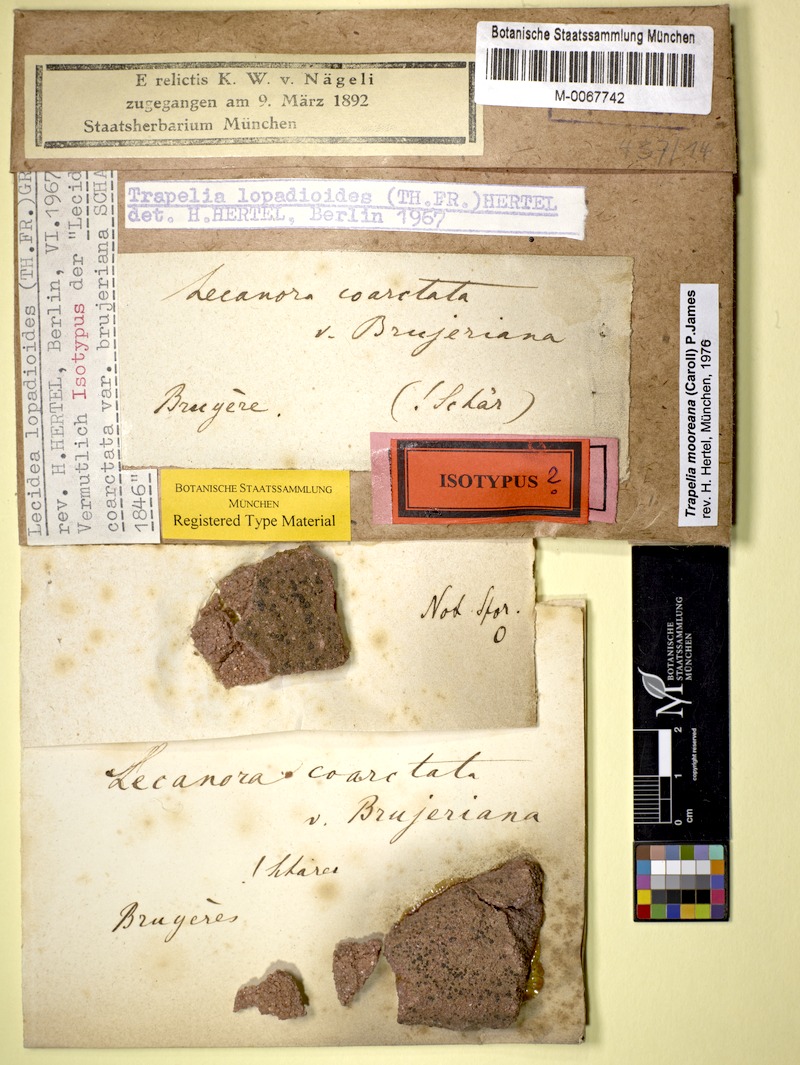 Botanische Staatssammlung München
M-0067742
E relictis K. W. v. Nägeli
zugegangen am 9. März 1892
Staatsherbarium München
437/14
Trapelia lopadioides (TH.FR.)HERTEL
det. H.HERTEL, Berlin 1967
Lecidea lopadioides (TH.FR.)GR
rev. H.HERTEL, Berlin, VI.1967
Vermutlich Isotypus der "Lecid
coarctata var. brujeriana SCHA
1846"
Lecanora coarctata
v. Brujeriana
Bruyère. (! Schär)
BOTANISCHE STAATSSAMMLUNG
MÜNCHEN
Registered Type Material
ISOTYPUS ?
Trapelia mooreana (Caroll) P.James
rev. H. Hertel, München, 1976
Not. Spor.
0
Lecanora coarctata
v. Brujeriana
Bruyères
BOTANISCHE
STAATSSAMMLUNG
MÜNCHEN
copyright reserved
0 1 2
cm